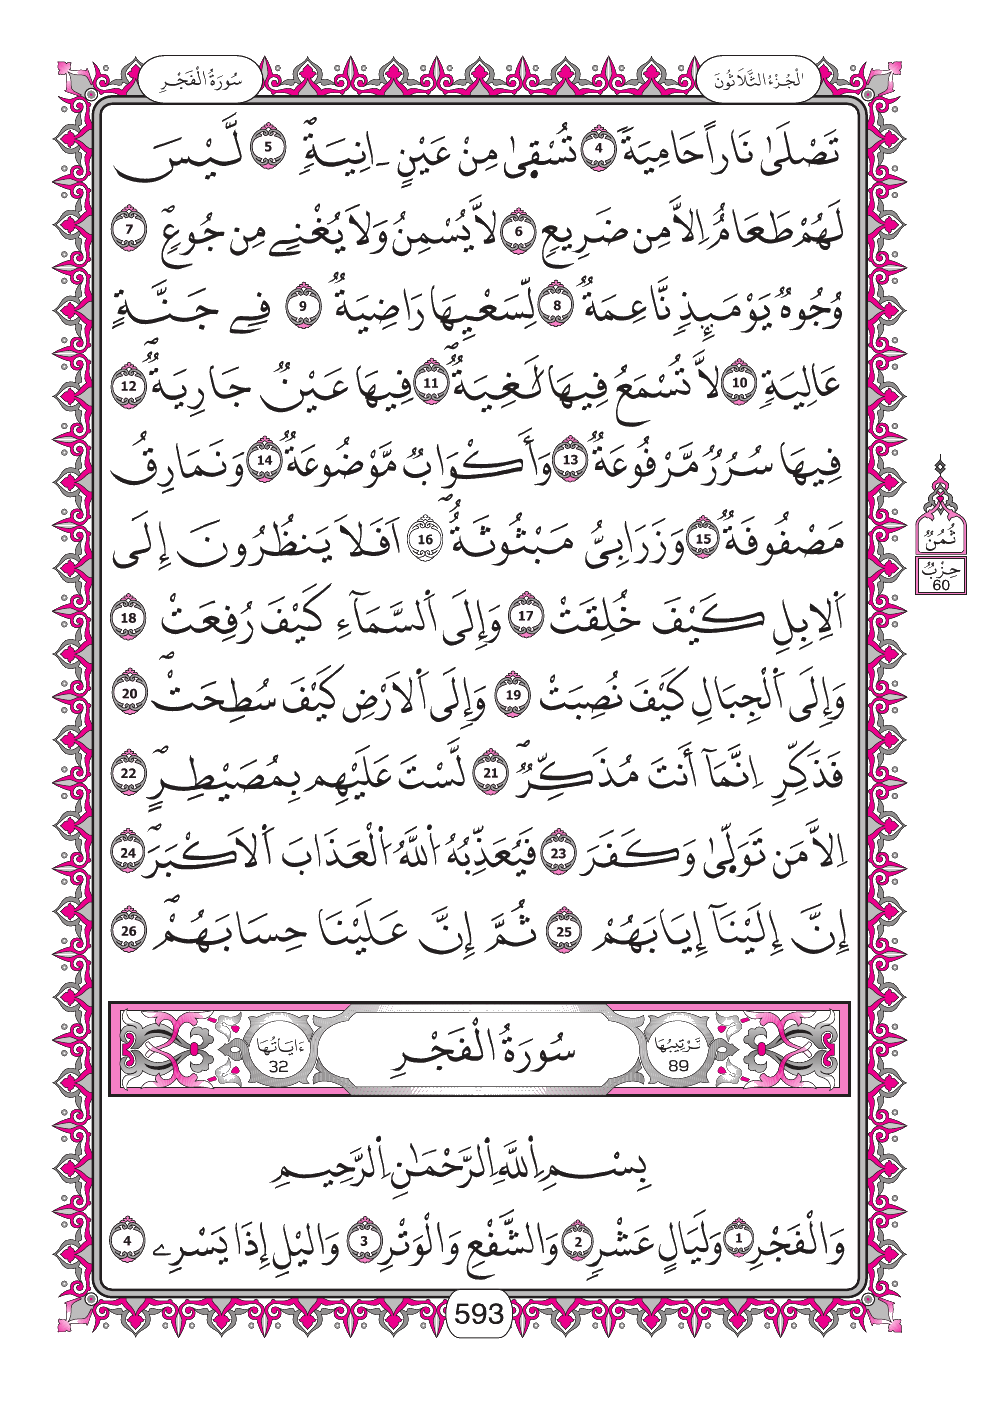 سُورَةُ الْفَجْرِ
اَلْجُزْءُ الثَّلَاثُونَ
تَصْلَىٰ نَاراً حَامِيَةٗ 4 تُسْق۪ىٰ مِنْ عَيْنٍ ـ اٰنِيَةٖۖ 5 لَّيْسَ
لَهُمْ طَعَامٌ اِلَّا مِن ضَرِيعٖ 6 لَّا يُسْمِنُ وَلَا يُغْنِے مِن جُوعٖۖ 7
وُجُوهٞ يَوْمَئِذٖ نَّاعِمَةٞ 8 لِّسَعْيِهَا رَاضِيَةٞ 9 فِے جَنَّةٍ
عَالِيَةٖۖ 10 لَّا تُسْمَعُ فِيهَا لَٰغِيَةٞۖ 11 فِيهَا عَيْنٞ جَارِيَةٞۖ 12
فِيهَا سُرُرٞ مَّرْفُوعَةٞ 13 وَأَكْوَابٞ مَّوْضُوعَةٞ 14 وَنَمَارِقُ
مَصْفُوفَةٞ 15 وَزَرَابِىُّ مَبْثُوثَةٌۖ 16 اَفَلَا يَنظُرُونَ إِلَى
اَلِابِلِ كَيْفَ خُلِقَتْ 17 وَإِلَى اَلسَّمَآءِ كَيْفَ رُفِعَتْ 18
وَإِلَى اَلْجِبَالِ كَيْفَ نُصِبَتْ 19 وَإِلَى اَلَارْضِ كَيْفَ سُطِحَتْۖ 20
فَذَكِّرِ اِنَّمَآ أَنتَ مُذَكِّرٞۖ 21 لَّسْتَ عَلَيْهِم بِمُصَيْطِرٍۖ 22
اِلَّا مَن تَوَلّ۪ىٰ وَكَفَرَ 23 فَيُعَذِّبُهُ اُللَّهُ اُلْعَذَابَ اَلَاكْبَرَۖ 24
إِنَّ إِلَيْنَآ إِيَابَهُمْ 25 ثُمَّ إِنَّ عَلَيْنَا حِسَابَهُمْۖ 26
ثُمُنُ
حِزْبٞ
60
تَرْتِيبُهَا
89
سُورَةُ الْفَجْرِ
ءَايَاتُهَا
32
بِسْمِ اِللَّهِ اِلرَّحْمَٰنِ اِلرَّحِيمِ
وَالْفَجْرِ 1 وَلَيَالٍ عَشْرٖ 2 وَالشَّفْعِ وَالْوَتْرِ 3 وَاليْلِ إِذَا يَسْرِۦ 4
593